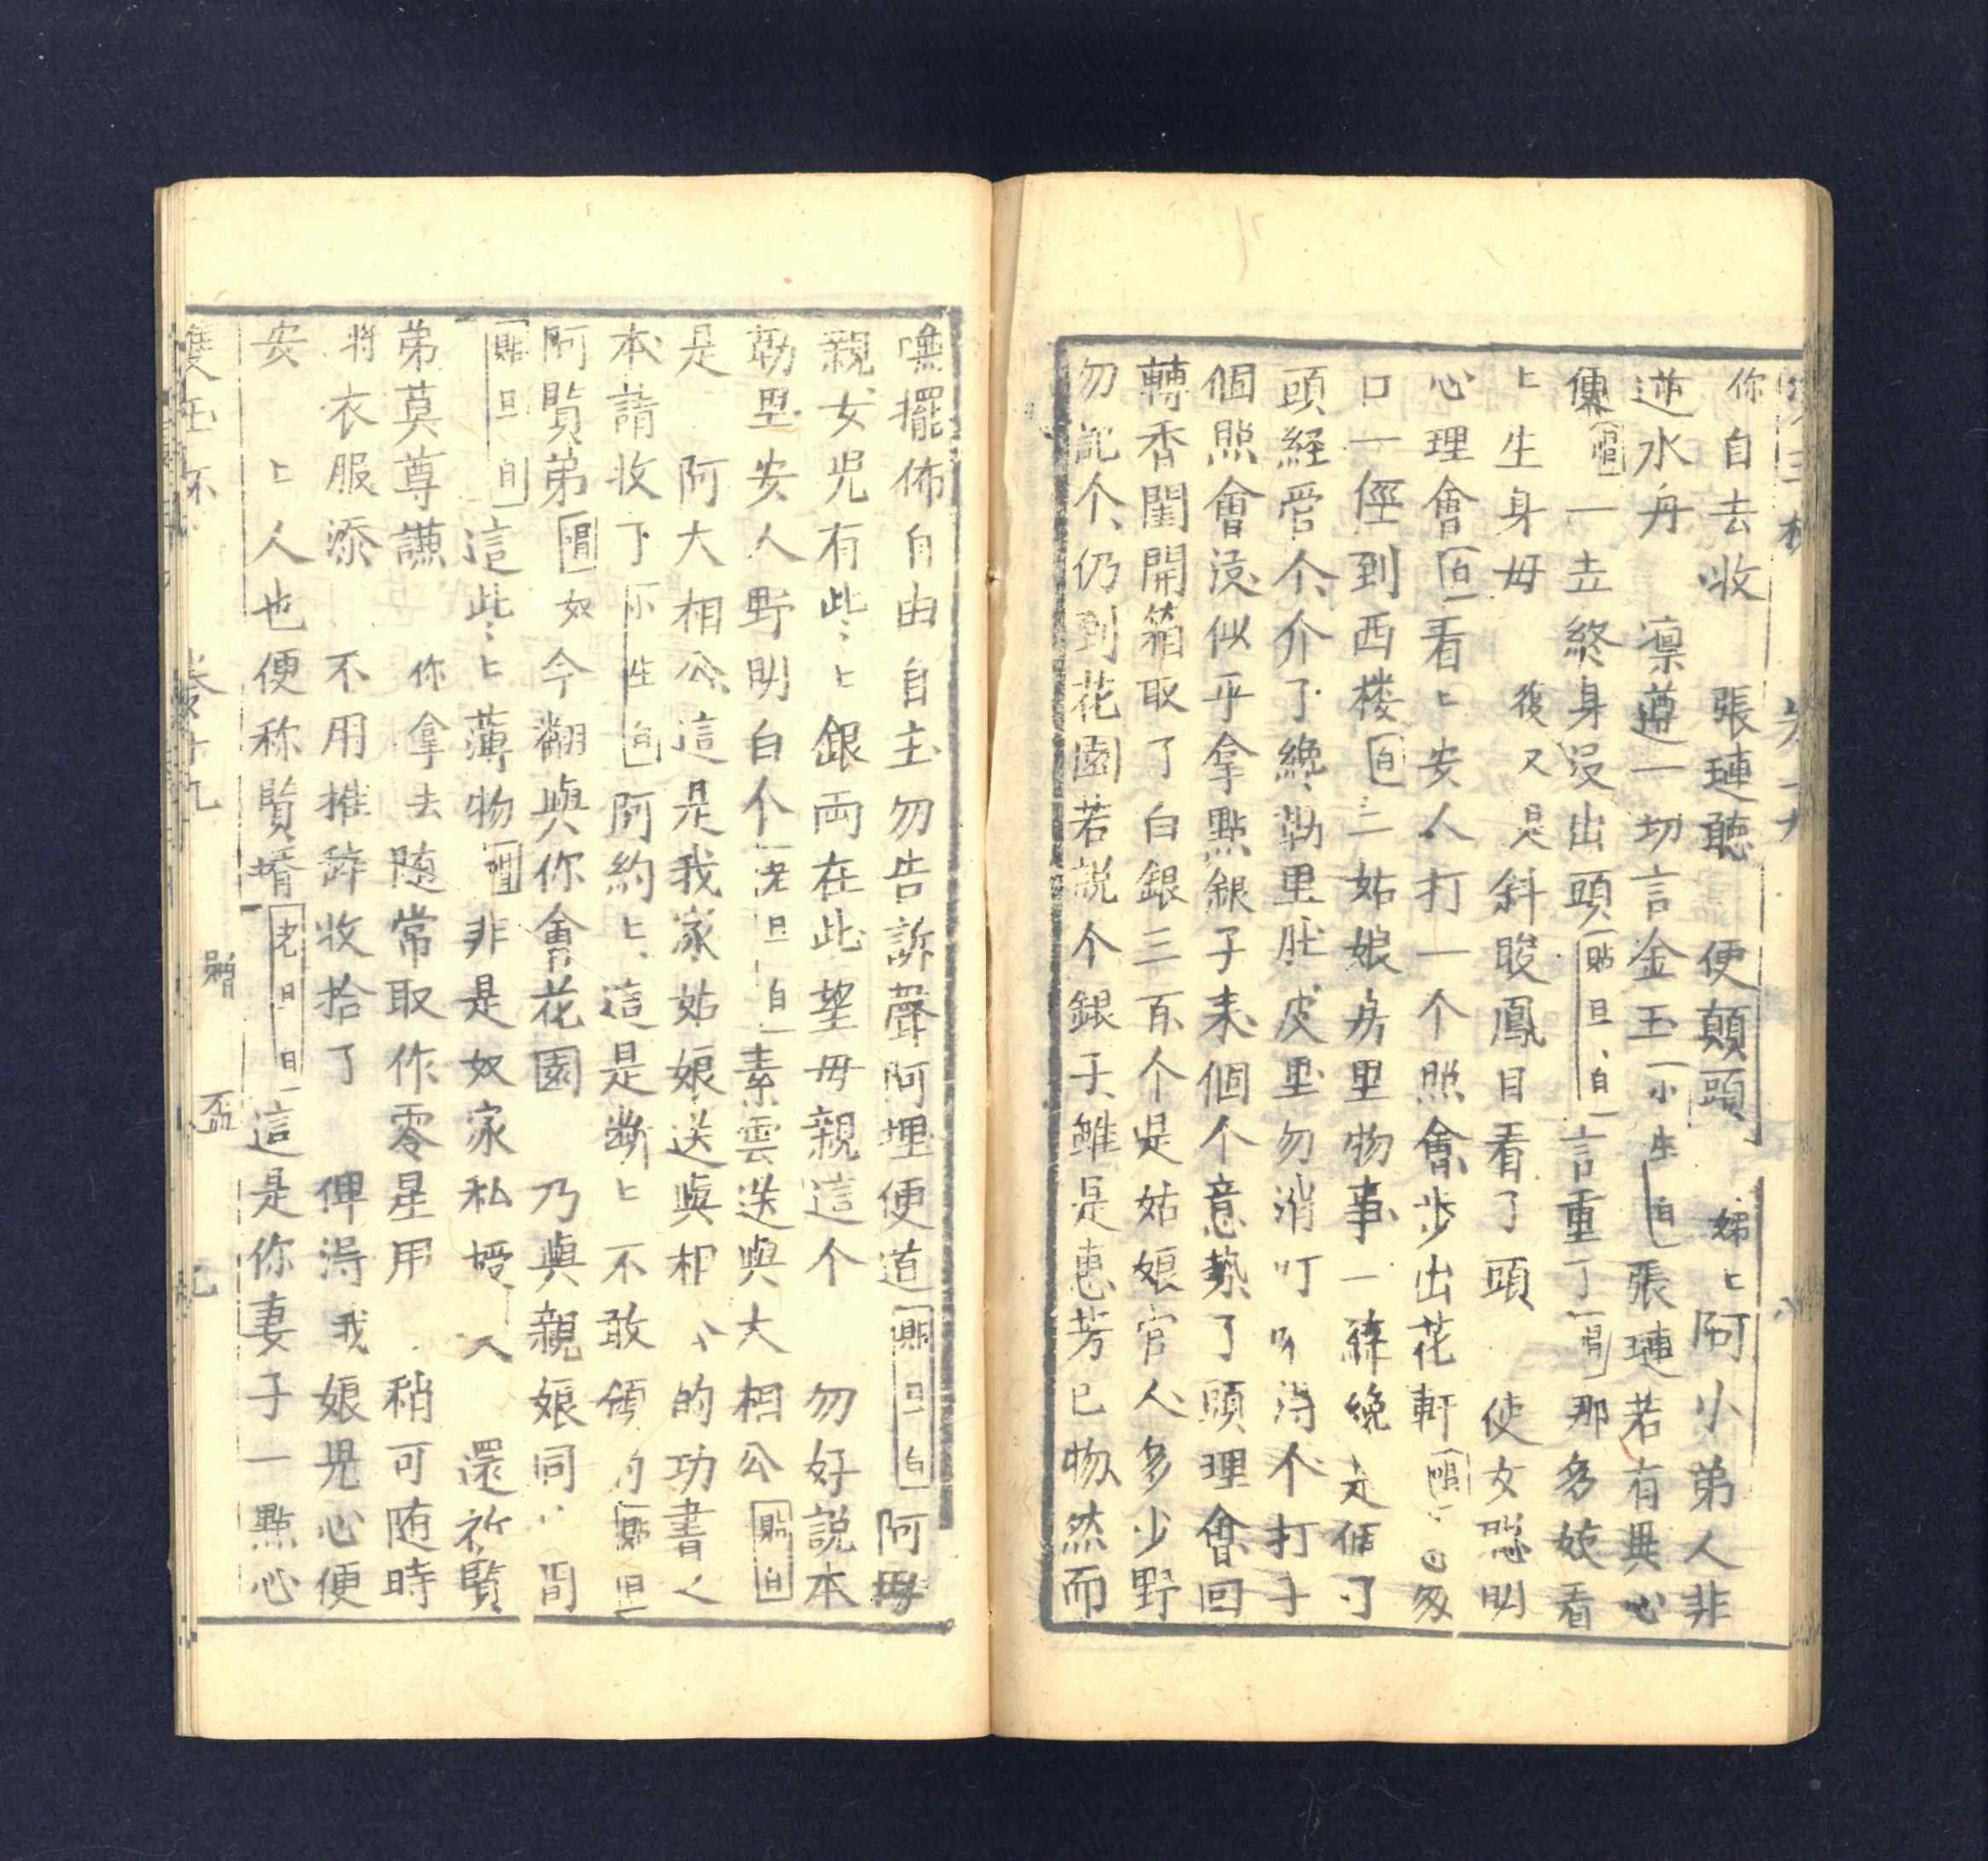 你自去收 張璉聽 便顛頭 姊〻阿小弟人非
逆水舟 凛遵一切言金玉 小生白 張璉若有異心
便 唱 一去終身没出頭 貼旦白 言重了 唱 那多姣看
〻生身母 復又是斜睃鳳目看了頭 使女聪明
心理會 白 看〻安人打一个照會步出花軒 唱
口一徑到西楼 白 二姑娘房里物事一綘絻
頭経营个介了絻勒里肚皮里勿消叮 得个打子
個照會遠似乎拿點銀子来個个意勢了頭理會回
轉香閨開箱取了白銀三百个是姑娘官人多少野
勿説个仍到花園若説个銀子雖是惠芳已物然而
嘸擺佈自由自主勿告訴聲阿埋便道 貼旦白 阿母
親女児有此〻銀両在此望母親這个 勿好説本
勒里安人野明白个 老旦白 素雲送與大相公 貼白
是 阿大相公這是我家姑娘送與相公的功書之
本請收下 小生白 阿約〻這是断〻不敢領的 貼旦
阿賢弟 唱 如今翻與你會花園 乃與親娘同
貼旦白 這此〻薄物 唱 非是奴家私授 還祈賢
弟莫尊謙 你拿去随常取作零星用 稍可随時
將衣服添 不用推辞收拾了 俾得我娘児心便
安 〻人也便称賢壻 老旦白 這是你妻子一點心
雙玉杯 卷十九 贈盃 九